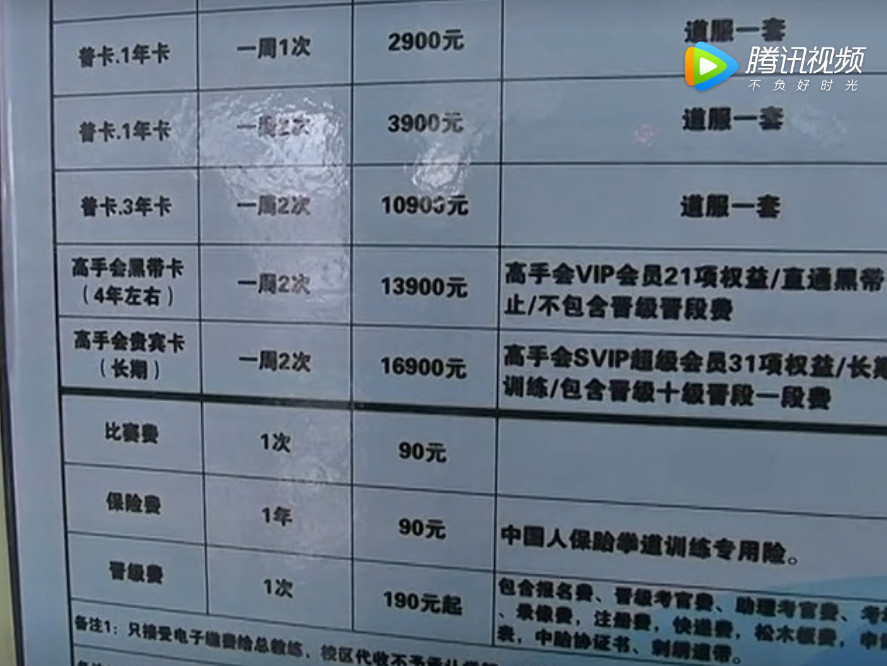 普卡.1年卡 一周1次 2900元 道服一套
腾讯视频
不负好时光
普卡.1年卡 一周2次 3900元 道服一套
普卡.3年卡 一周2次 10900元 道服一套
高手会黑带卡
(4年左右)
一周2次 13900元
高手会VIP会员21项权益/直通黑带
止/不包含晋级晋段费
高手会贵宾卡
(长期)
一周2次 16900元
高手会SVIP超级会员31项权益/长期
训练/包含晋级十级晋段一段费
比赛费 1次 90元
保险费 1年 90元 中国人保跆拳道训练专用险。
晋级费 1次 190元起
包含报名费、晋级考官费、助理考官费、考
、录像费,注册费,快递费,松木板费,申
表,中跆协证书、刺绣道带。
备注1:只接受电子缴费给总教练,校区代收不予承认